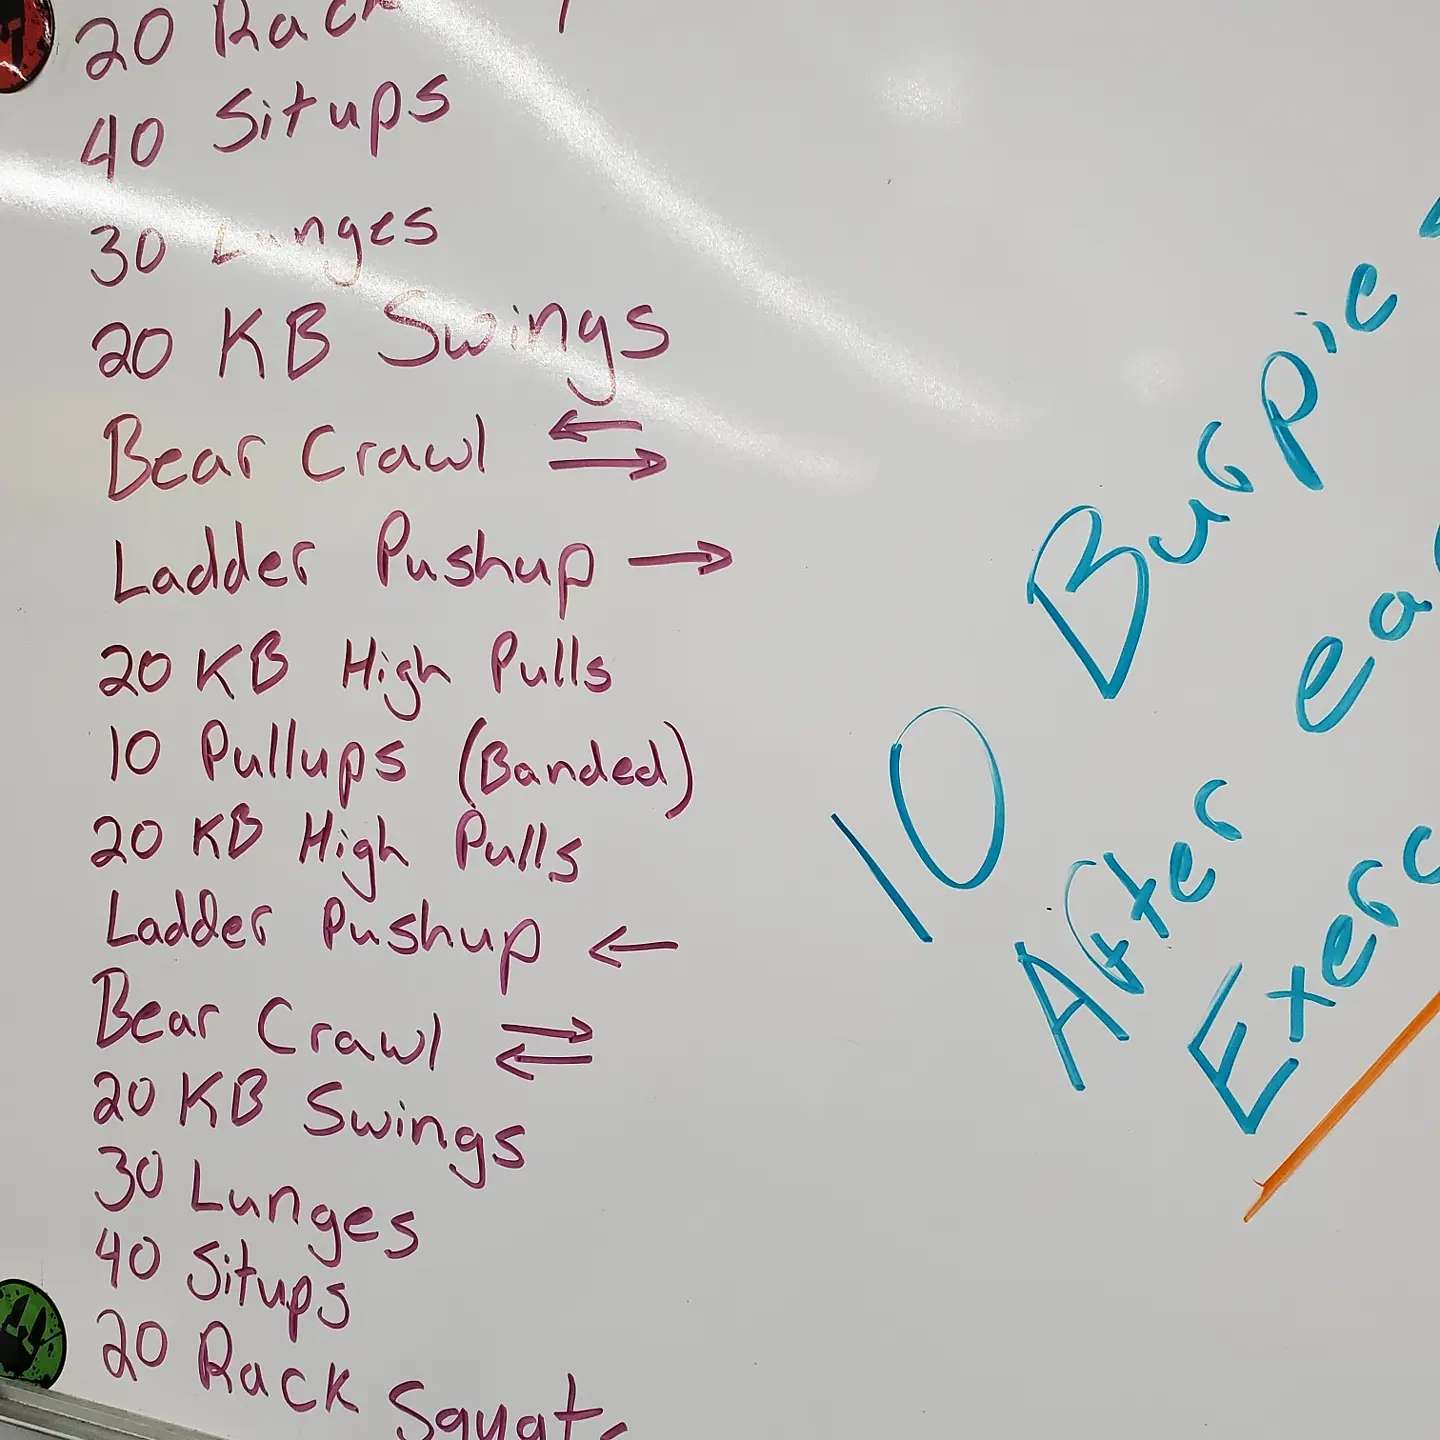 20 Rack
40 Situps
30 Lunges
20 KB Swings
Bear Crawl ←
→
Ladder Pushup →
20 KB High Pulls
10 Pullups (Banded)
20 KB High Pulls
Ladder Pushup ←
Bear Crawl →
←
20 KB Swings
30 Lunges
40 Situps
20 Rack Squats
10 Burpie
After ea
Exerc